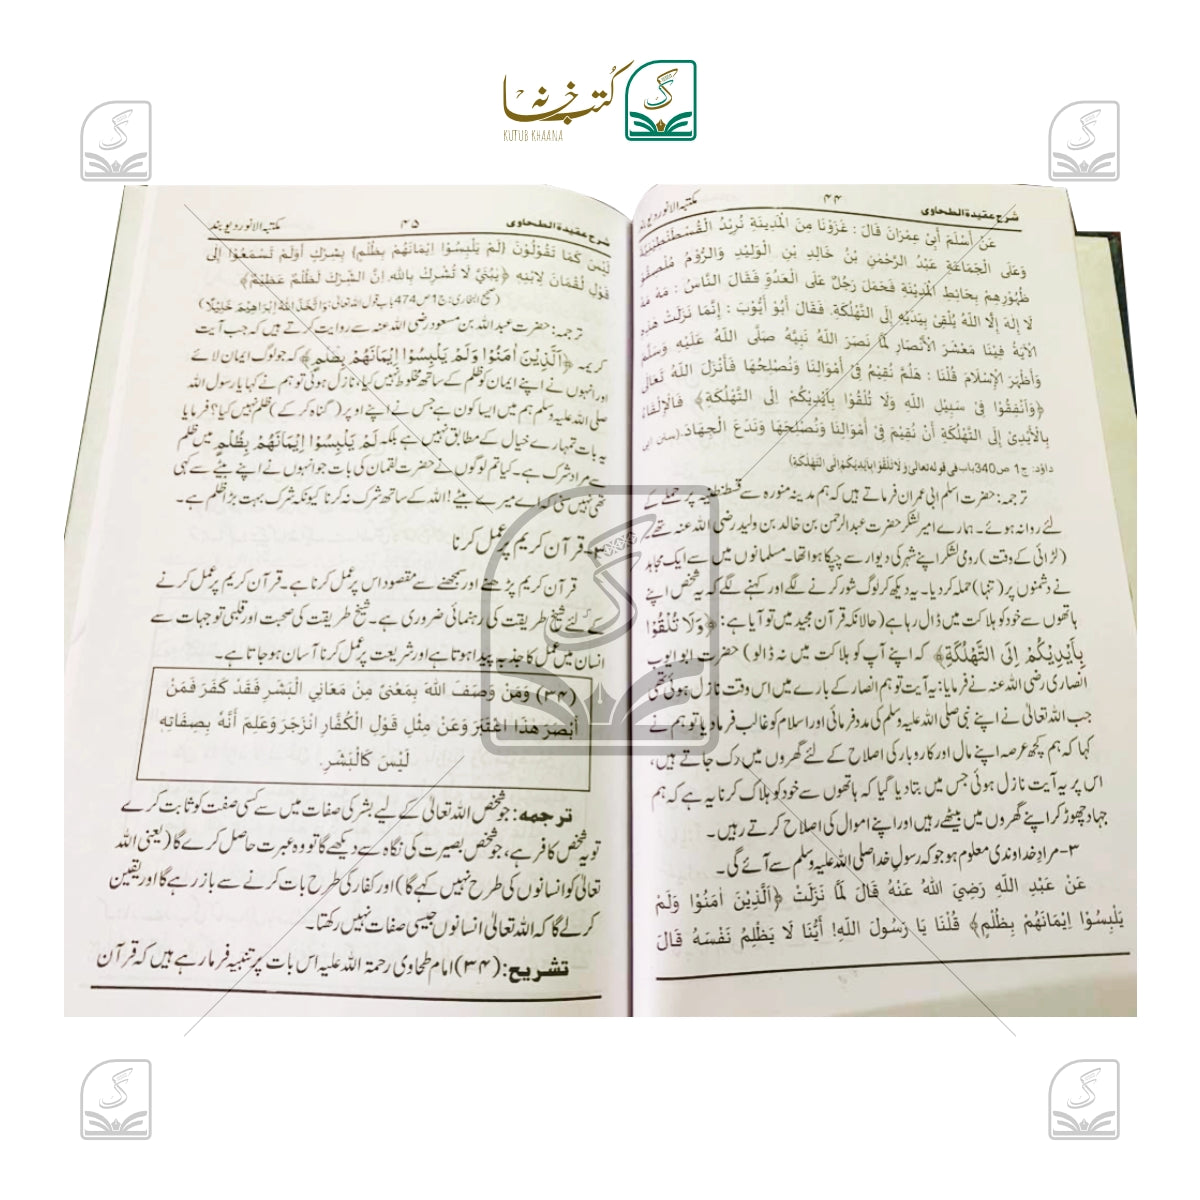 کتب خانہ
KUTUB KHAANA
شرح عقیدۃ الطحاوی ۴۴ مکتبہ الانور دیوبند
عَنْ أَسْلَمَ أَبِیْ عِمْرَانَ قَالَ: غَزَوْنَا مِنَ الْمَدِینَةِ نُرِیْدُ الْقُسْطُنْطِیْنِیَّةَ
وَعَلَی الْجَمَاعَةِ عَبْدُ الرَّحْمٰنِ بْنُ خَالِدِ بْنِ الْوَلِیْدِ وَالرُّوْمُ مُلْصِقُوْ
ظُهُوْرِهِمْ بِحَائِطِ الْمَدِیْنَةِ فَحَمَلَ رَجُلٌ عَلَی الْعَدُوِّ فَقَالَ النَّاسُ: مَهْ مَهْ
لَا اِلٰهَ اِلَّا اللّٰهُ یُلْقِیْ بِیَدَیْهِ اِلَی التَّهْلُکَةِ. فَقَالَ أَبُوْ أَیُّوْبَ: إِنَّمَا نَزَلَتْ هٰذِهِ
الْآیَةُ فِیْنَا مَعْشَرَ الْأَنْصَارِ لَمَّا نَصَرَ اللّٰهُ نَبِیَّهُ صَلَّی اللّٰهُ عَلَیْهِ وَسَلَّمَ
وَأَظْهَرَ الْإِسْلَامَ قُلْنَا: هَلُمَّ نُقِیْمُ فِیْ أَمْوَالِنَا وَنُصْلِحُهَا فَأَنْزَلَ اللّٰهُ تَعَالٰی
﴿وَأَنْفِقُوْا فِیْ سَبِیْلِ اللّٰهِ وَلَا تُلْقُوْا بِأَیْدِیْکُمْ اِلَی التَّهْلُکَةِ﴾ فَالْإِلْقَاءُ
بِالْأَیْدِیْ اِلَی التَّهْلُکَةِ أَنْ نُقِیْمَ فِیْ أَمْوَالِنَا وَنُصْلِحَهَا وَنَدَعَ الْجِهَادَ. (سنن ابی
داؤد: ج1 ص340 باب فی قولہ تعالی وَلَا تُلْقُوْا بِأَیْدِیْکُمْ اِلَی التَّهْلُکَةِ)
ترجمہ: حضرت اسلم ابی عمران فرماتے ہیں کہ ہم مدینہ منورہ سے قسطنطنیہ پر حملے کے
لئے روانہ ہوئے۔ ہمارے امیر لشکر حضرت عبدالرحمن بن خالد بن ولید رضی اللہ عنہ تھے۔
(لڑائی کے وقت) رومی لشکر اپنے شہر کی دیوار سے چپکا ہوا تھا۔ مسلمانوں میں سے ایک مجاہد
نے دشمنوں پر (تنہا) حملہ کر دیا۔ یہ دیکھ کر لوگ شور کرنے لگے اور کہنے لگے کہ یہ شخص اپنے
ہاتھوں سے خود کو ہلاکت میں ڈال رہا ہے (حالانکہ قرآن مجید میں تو آیا ہے: ﴿وَلَا تُلْقُوْا
بِأَیْدِیْکُمْ اِلَی التَّهْلُکَةِ﴾ کہ اپنے آپ کو ہلاکت میں نہ ڈالو) حضرت ابو ایوب
انصاری رضی اللہ عنہ نے فرمایا: یہ آیت تو ہم انصار کے بارے میں اس وقت نازل ہوئی تھی
جب اللہ تعالیٰ نے اپنے نبی صلی اللہ علیہ وسلم کی مدد فرمائی اور اسلام کو غالب فرما دیا تو ہم نے
کہا کہ ہم کچھ عرصہ اپنے مال اور کاروبار کی اصلاح کے لئے گھروں میں رک جاتے ہیں،
اس پر یہ آیت نازل ہوئی جس میں بتا دیا گیا کہ ہاتھوں سے خود کو ہلاک کرنا یہ ہے کہ ہم
جہاد چھوڑ کر اپنے گھروں میں بیٹھے رہیں اور اپنے اموال کی اصلاح کرتے رہیں۔
۳- مراد خداوندی معلوم ہو جو کہ رسول خدا صلی اللہ علیہ وسلم سے آئے گی۔
عَنْ عَبْدِ اللّٰهِ رَضِیَ اللّٰهُ عَنْهُ قَالَ لَمَّا نَزَلَتْ ﴿اَلَّذِیْنَ اٰمَنُوْا وَلَمْ
یَلْبِسُوْا اِیْمَانَهُمْ بِظُلْمٍ﴾ قُلْنَا یَا رَسُوْلَ اللّٰهِ! أَیُّنَا لَا یَظْلِمُ نَفْسَهُ قَالَ
شرح عقیدۃ الطحاوی ۴۵ مکتبہ الانور دیوبند
لَیْسَ کَمَا تَقُوْلُوْنَ ﴿لَمْ یَلْبِسُوْا اِیْمَانَهُمْ بِظُلْمٍ﴾ بِشِرْكٍ أَوَلَمْ تَسْمَعُوْا اِلٰی
قَوْلِ لُقْمَانَ لِابْنِهِ ﴿یٰبُنَیَّ لَا تُشْرِكْ بِاللّٰهِ اِنَّ الشِّرْكَ لَظُلْمٌ عَظِیْمٌ﴾
(صحیح البخاری: ج1 ص474 باب قول اللہ تعالی وَاتَّخَذَ اللّٰهُ اِبْرَاهِیْمَ خَلِیْلًا)
ترجمہ: حضرت عبد اللہ بن مسعود رضی اللہ عنہ سے روایت کرتے ہیں کہ جب آیت
کریمہ ﴿اَلَّذِیْنَ اٰمَنُوْا وَلَمْ یَلْبِسُوْا اِیْمَانَهُمْ بِظُلْمٍ﴾ کہ جو لوگ ایمان لائے
اور انہوں نے اپنے ایمان کو ظلم کے ساتھ مخلوط نہیں کیا، نازل ہوئی تو ہم نے کہا یا رسول اللہ
صلی اللہ علیہ وسلم ہم میں ایسا کون ہے جس نے اپنے اوپر (گناہ کر کے) ظلم نہیں کیا؟ فرمایا
یہ بات تمہارے خیال کے مطابق نہیں ہے بلکہ لَمْ یَلْبِسُوْا اِیْمَانَهُمْ بِظُلْمٍ میں ظلم
سے مراد شرک ہے۔ کیا تم لوگوں نے حضرت لقمان کی بات جو انہوں نے اپنے بیٹے سے کہی
تھی نہیں سنی کہ اے میرے بیٹے! اللہ کے ساتھ شرک نہ کرنا کیونکہ شرک بہت بڑا ظلم ہے۔
۳- قرآن کریم پر عمل کرنا
قرآن کریم پڑھنے اور سمجھنے سے مقصود اس پر عمل کرنا ہے۔ قرآن کریم پر عمل کرنے
کے لئے شیخ طریقت کی رہنمائی ضروری ہے۔ شیخ طریقت کی صحبت اور قلبی توجہات سے
انسان میں عمل کا جذبہ پیدا ہوتا ہے اور شریعت پر عمل کرنا آسان ہو جاتا ہے۔
(۳۴) وَمَنْ وَصَفَ اللّٰهَ بِمَعْنًی مِنْ مَعَانِی الْبَشَرِ فَقَدْ کَفَرَ فَمَنْ
أَبْصَرَ هٰذَا اعْتَبَرَ وَعَنْ مِثْلِ قَوْلِ الْکُفَّارِ انْزَجَرَ وَعَلِمَ أَنَّهُ بِصِفَاتِهٖ
لَیْسَ کَالْبَشَرِ.
ترجمہ: جو شخص اللہ تعالیٰ کے لیے بشر کی صفات میں سے کسی صفت کو ثابت کرے
تو یہ شخص کافر ہے، جو شخص بصیرت کی نگاہ سے دیکھے گا تو وہ عبرت حاصل کرے گا (یعنی اللہ
تعالیٰ کو انسانوں کی طرح نہیں کہے گا) اور کفار کی طرح بات کرنے سے باز رہے گا اور یقین
کرلے گا کہ اللہ تعالیٰ انسانوں جیسی صفات نہیں رکھتا۔
تشریح: (۳۴) امام طحاوی رحمۃ اللہ علیہ اس بات پر تنبیہ فرما رہے ہیں کہ قرآن